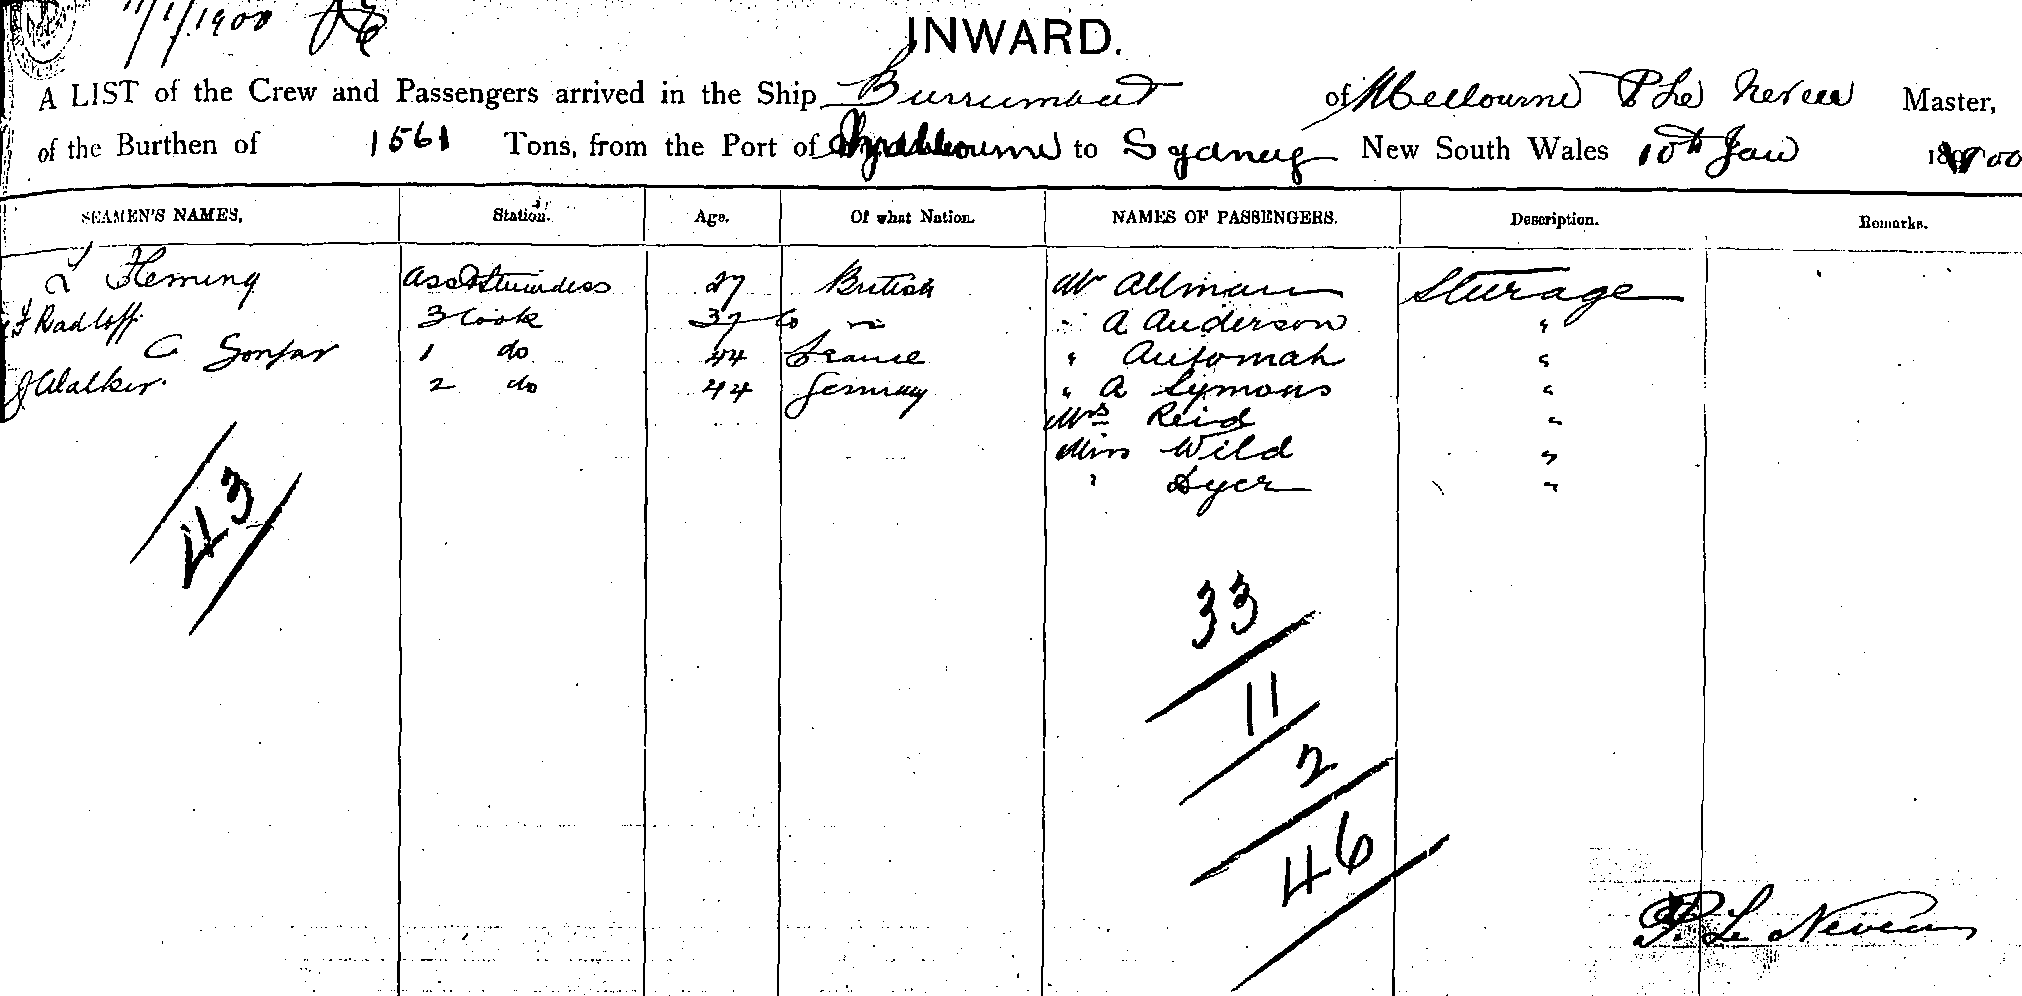 11/1/1900
INWARD.
A LIST of the Crew and Passengers arrived in the Ship Burrumbeet of Melbourne P Le Neveu Master,
of the Burthen of 1561 Tons, from the Port of Melbourne to Sydney New South Wales 10th Jan 1900
SEAMEN'S NAMES, Station. Age. Of what Nation. NAMES OF PASSENGERS. Description. Remarks.
L Fleming Asst Stewardess 27 British Mr Allman Sturage
F Radloff 3 Cook 37 " A Anderson "
C 1 do 44 France " Automah "
J Walker. 2 do 44 Germany " A Symons "
Mrs Reid "
Miss Wild "
" Dyer "
43
33
11
2
46
P. Le Neveu